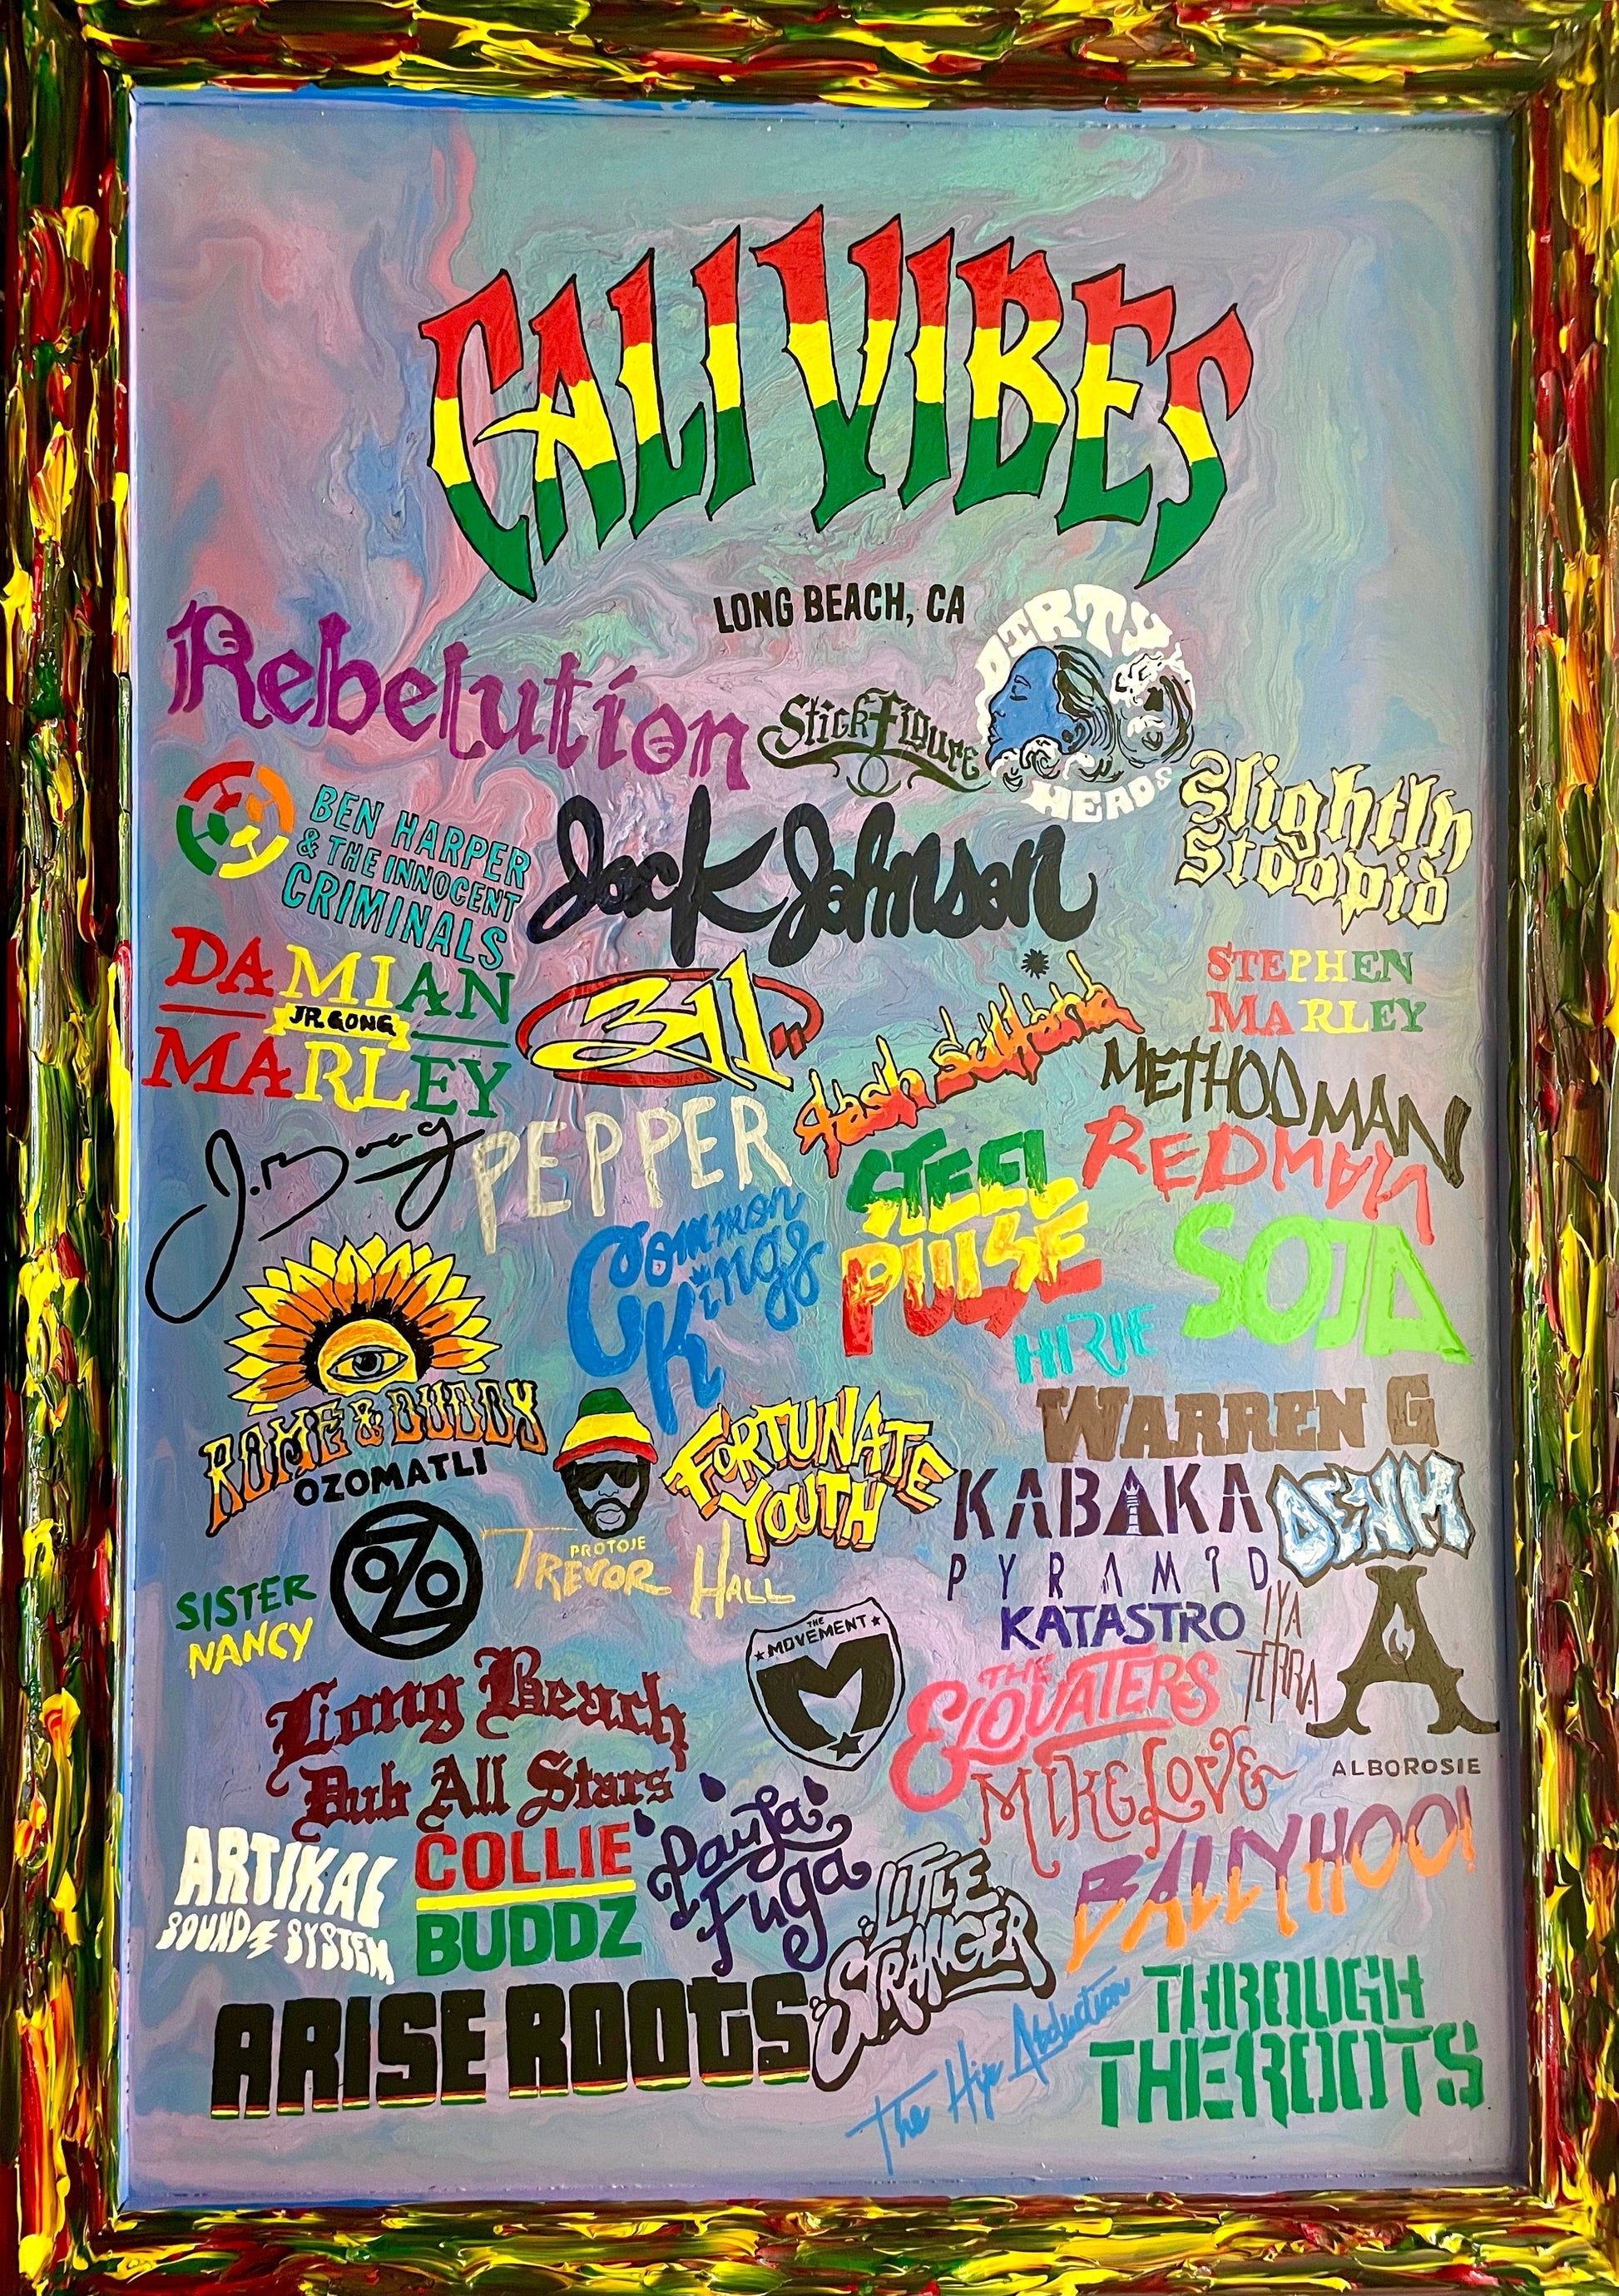 CALI VIBES
LONG BEACH, CA
Rebelution
Stick Figure
DIRTY
HEADS
Slightly
Stoopid
BEN HARPER
& THE INNOCENT
CRIMINALS
Jack Johnson
DAMIAN
JR. GONG
MARLEY
311
Hash Sultana
STEPHEN
MARLEY
METHOD MAN
REDMAN
J. Boog
PEPPER
STEEL
PULSE
Common
Kings
SOJA
HIRIE
ROME & DUDDY
OZOMATLI
OZO
PROTOJE
FORTUNATE
YOUTH
WARREN G
KABAKA
PYRAMID
DENM
TREVOR HALL
SISTER
NANCY
KATASTRO
IYA
TERRA
THE
MOVEMENT
M
A
ALBOROSIE
Long Beach
Dub All Stars
THE
ELOVATERS
MIKE LOVE
ARTIKAL
SOUND SYSTEM
COLLIE
BUDDZ
Paula
Fuga
LITTLE
STRANGER
BALLYHOO!
ARISE ROOTS
The Hip Abduction
THROUGH
THE ROOTS